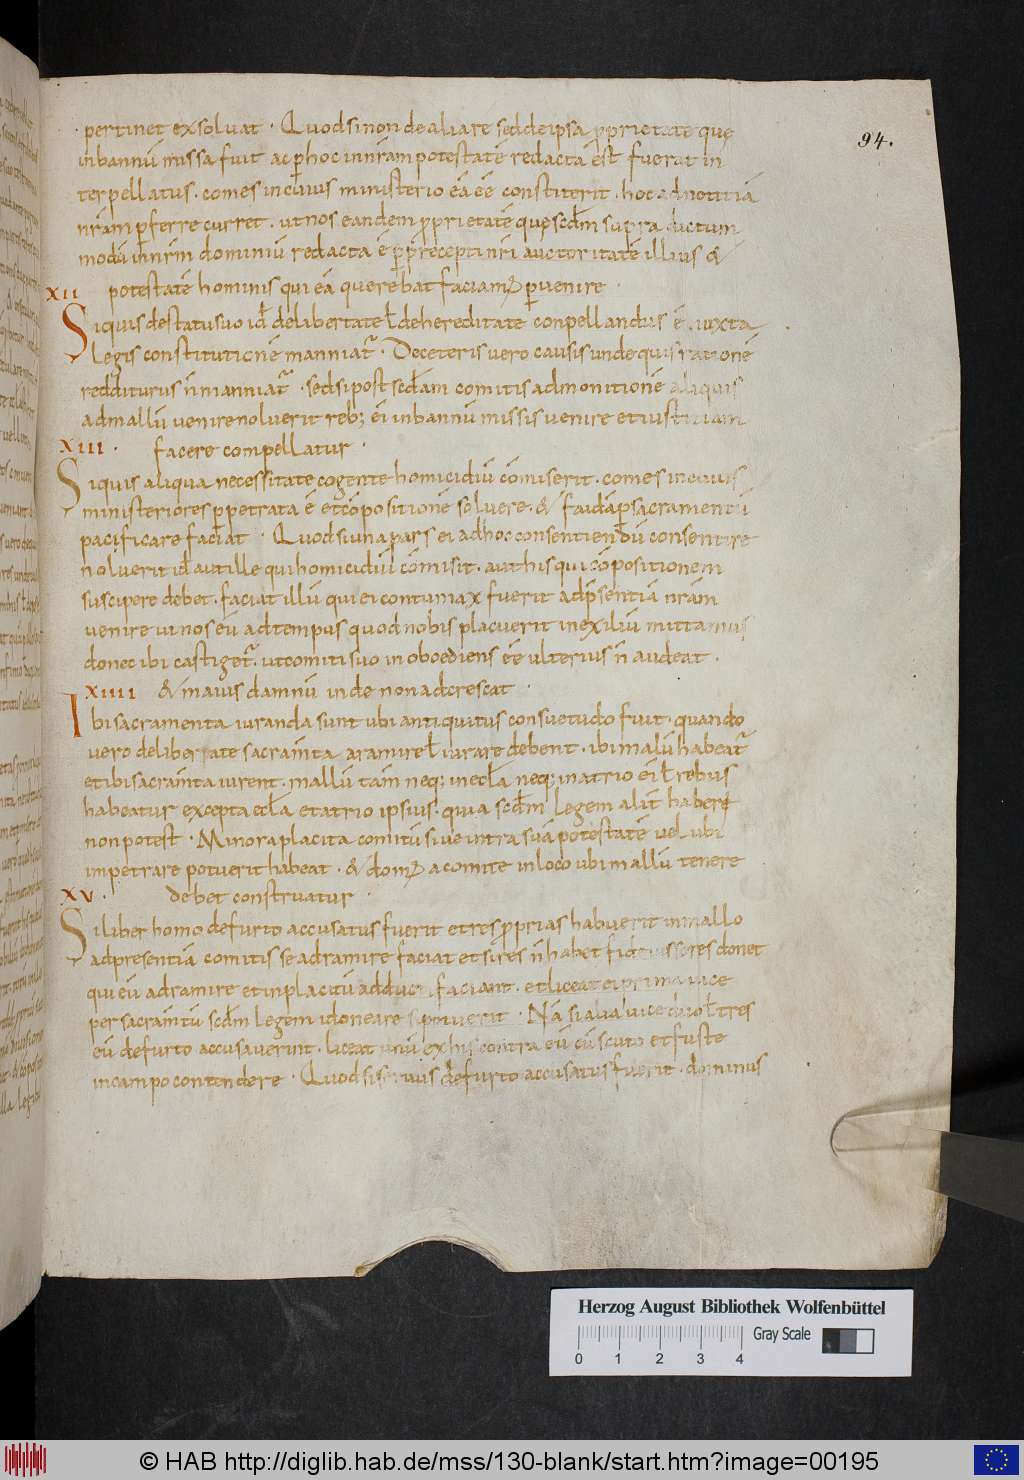 94.
pertinet exsoluat · Quod si non de aliare sed de ipsa ꝓprietate quę
in bannū missa fuit ac ꝑ hoc in nr̄am potestatē redacta est fuerat in
terpellatus · comes in cuius ministerio ea eē constiterit · hoc ad notitiā
nr̄am ꝑferre curret · ut nos eandem ꝓprietatē quę scd̄m supra dictum
modū in nr̄m dominiū redacta ē ꝑ precepti nr̄i auctoritatē illius &
XII potestatē hominis qui eā querebat faciam; ꝑuenire ·
Si quis de statu suo id̄ de libertate ł de hereditate conpellandus ē · iuxta
legis constitutionē manniat᷑ · De ceteris uero causis unde quis rationē
redditurus n̄ manniat᷑ · sed si post scd̄am comitis admonitionē aliquis
ad mallū uenire noluerit reb; ei in bannū missis uenire et iustitiam
XIII · facere compellatur ·
Si quis aliqua necessitate cogente homicidiū cōmiserit · comes in cuius
ministerio res ꝑpetrata ē et cōpositionē soluere · & faidā ꝑ sacramentū
pacificare faciat · Quod si una pars ei ad hoc consentiendū consentire
noluerit id̄ aut ille qui homicidiū cōmisit · aut his qui cōpositionem
suscipere debet · faciat illū qui ei contumax fuerit ad p̄sentiā nr̄am
uenire ut nos eū ad tempus quod nobis placuerit in exiliū mittamus
donec ibi castiget᷑ · ut comiti suo in oboediens eē ulterius n̄ audeat ·
XIIII & maius damnū inde non adcrescat ·
Ibi sacramenta iuranda sunt ubi antiquitus consuetudo fuit · quando
uero de libertate sacram̄ta aramire ł iurare debent · ibi malū habeat᷑
et ibi sacram̄ta iurent · mallū tam̄ neq; in eccl̄a neq; in atrio ei ł rebus
habeatur excepta eccl̄a et atrio ipsius · quia scd̄m legem alit̄ habere
non potest · Minora placita comitū siue intra suā potestatē uel ubi
impetrare potuerit habeat · & dom; a comite in loco ubi mallū tenere
XV · debet construatur ·
Si liber homo de furto accusatus fuerit et res ꝓprias habuerit in mallo
ad presentiā comitis se adramire faciat et si res n̄ habet fideiussores donet
qui eū adramire et in placitū adduci faciant · et liceat ei prima uice
per sacram̄tū scd̄m legem idoneare si potuerit · Nā si alia uice duo ł tres
eū de furto accusauerint · liceat unū ex his contra eū cū scuto et fuste
in campo contendere · Quod si seruus de furto accusatus fuerit · dominus
Herzog August Bibliothek Wolfenbüttel
0 1 2 3 4 Gray Scale
© HAB http://diglib.hab.de/mss/130-blank/start.htm?image=00195